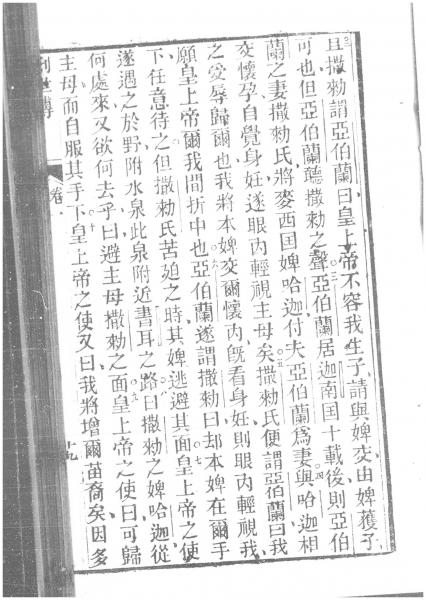 且撒勑謂亞伯蘭曰皇上帝不容我生子、請與婢交、由婢獲子
可也但亞伯蘭聽撒勑之聲、亞伯蘭居迦南国十載後、則亞伯
蘭之妻撒勑氏將麥西国婢哈迦付夫亞伯蘭爲妻與哈迦相
交懷孕自覺身妊遂眼內輕視主母矣、撒勑氏便謂亞伯蘭曰我
之受辱歸爾也我將本婢交爾懷內、旣看身妊則眼內輕視我、
願皇上帝爾我間折中也亞伯蘭遂謂撒勑曰却本婢在爾手
下、任意待之但撒勑氏苦廹之時其婢逃避其面皇上帝之使
遂遇之於野附水泉此泉附近書耳之路曰撒勑之婢哈迦從
何處來又欲何去乎曰避主母撒勑之面皇上帝之使曰可歸
主母而自服其手下皇上帝之使又曰我將增爾苗裔矣因多
世傳
卷一
十九